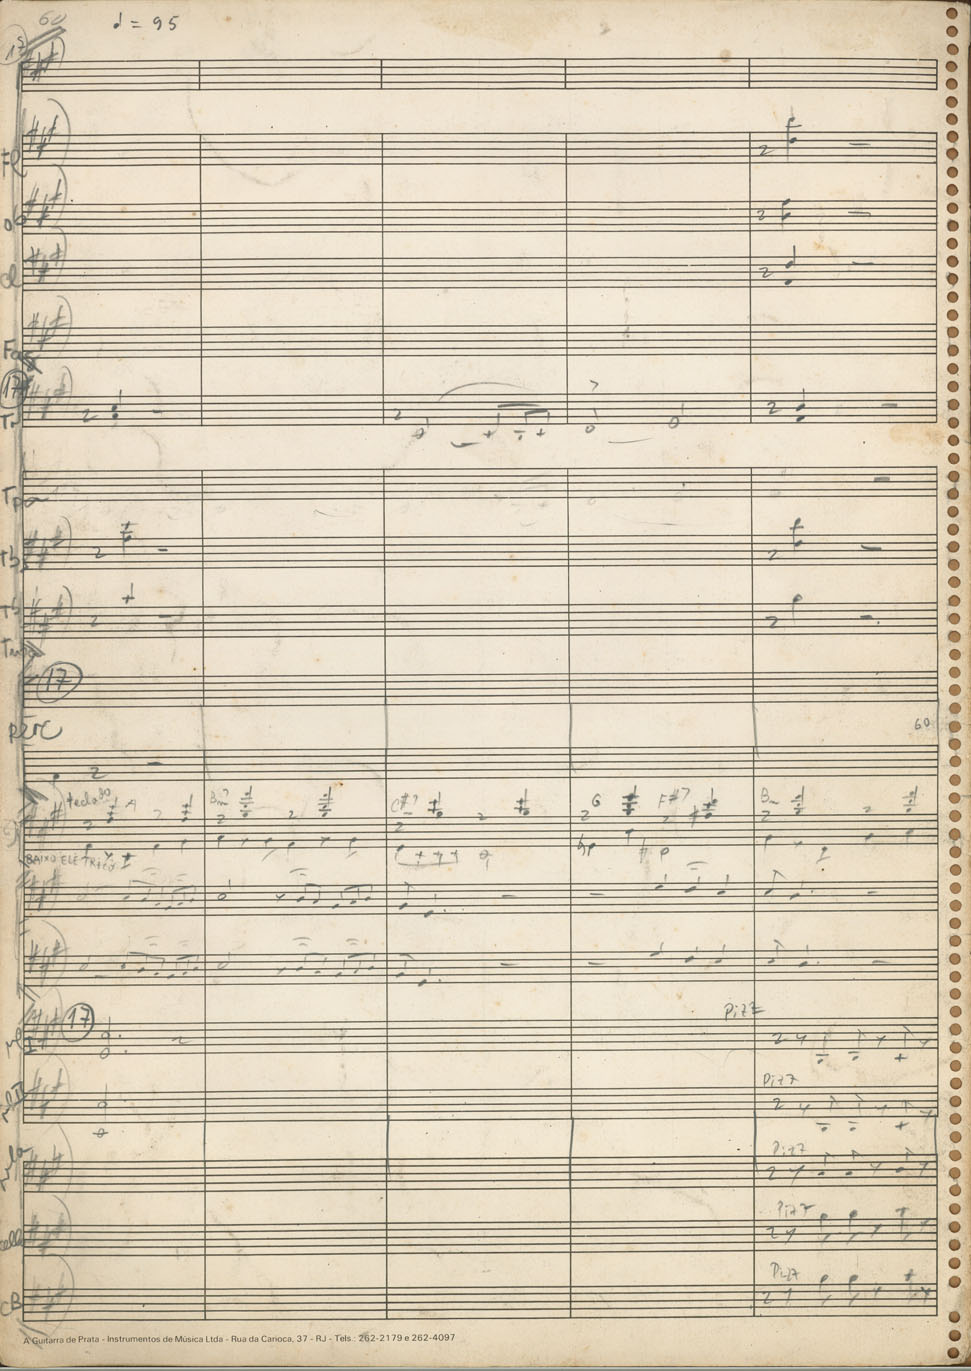 60
♩ = 95
17
Fl
ob
cl
Fag
17
Tr
Tpa
Tb
Tb
Tuba
17
PERC
60
teclado A Bm7 C#7 G F#7 Bm
BAIXO ELÉTRICO
17
vl I
Pizz
vl II
Pizz
vla
Pizz
cello
Pizz
CB
Pizz
A Guitarra de Prata - Instrumentos de Música Ltda - Rua da Carioca, 37 - RJ - Tels.: 262-2179 e 262-4097